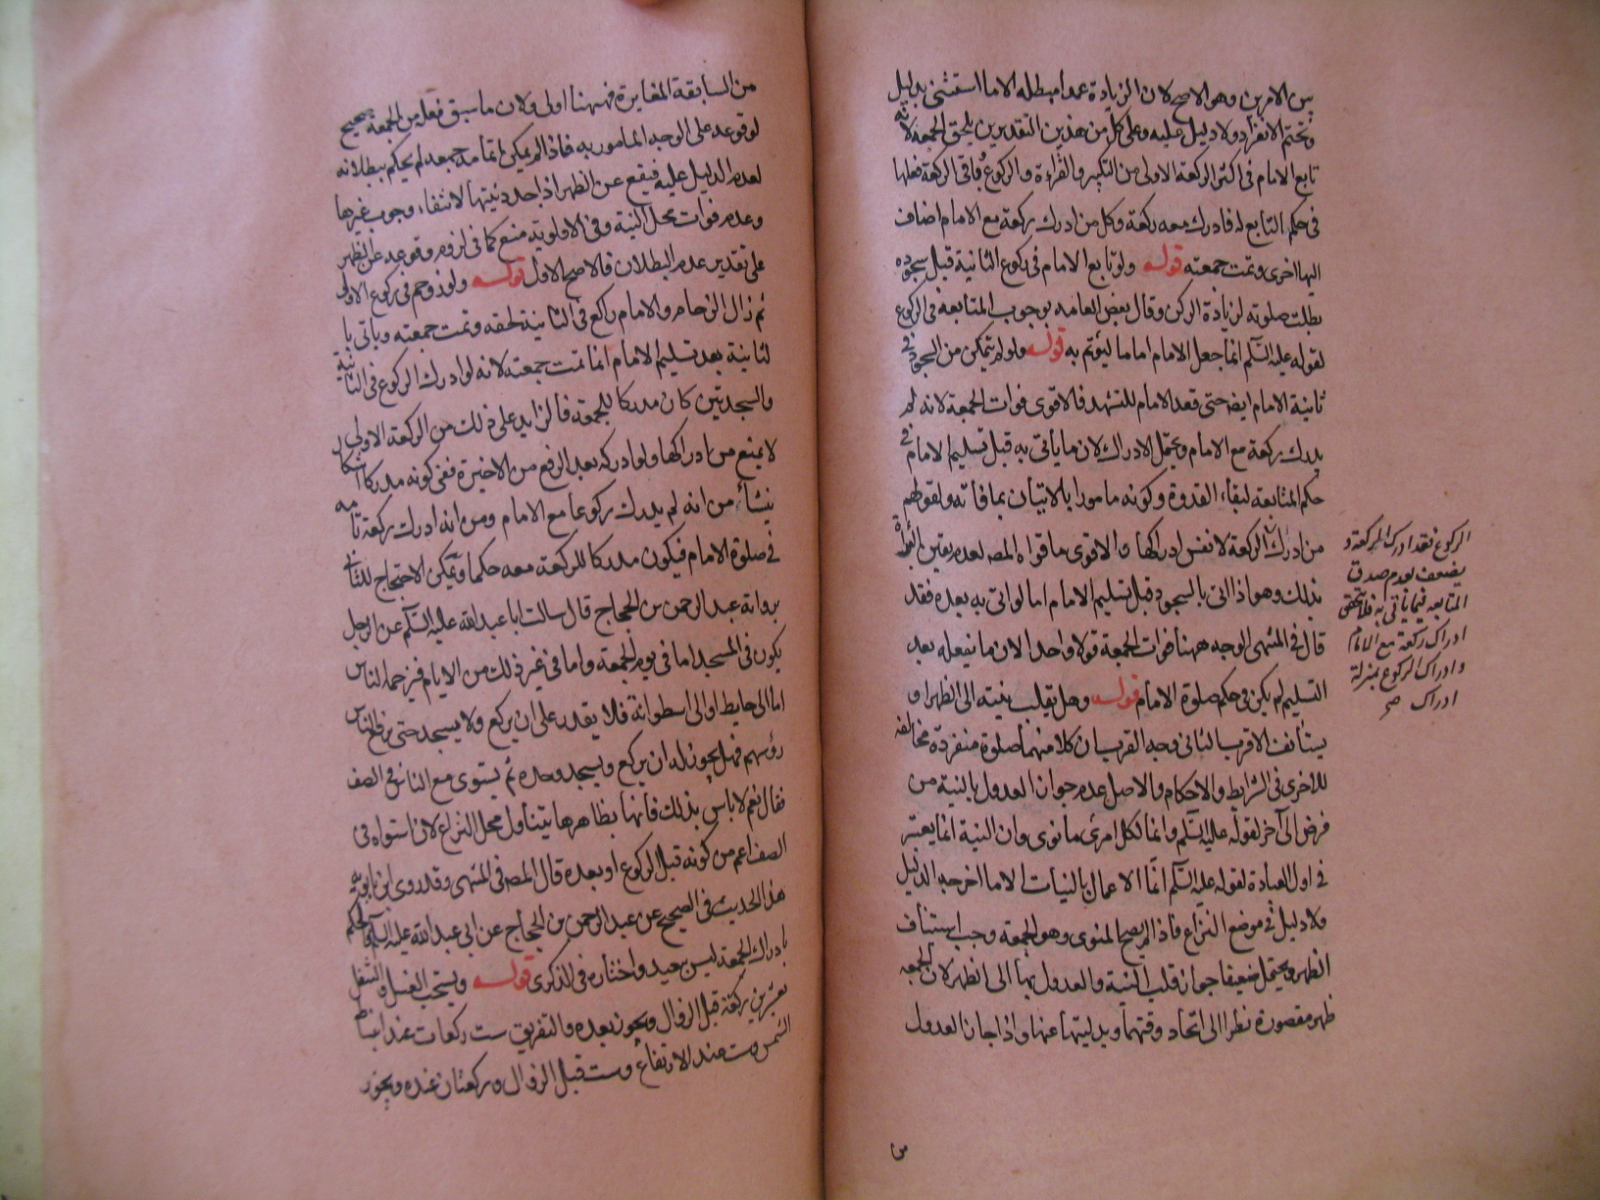 بين الامرين وهو الاصح لان الزيادة عمدا مبطله الا ما استثنى بدليل
وتحتم الانفراد ولا دليل عليه وعلى كل من هذين التقديرين يلحق الجمعة لانه
تابع الامام في اكثر الركعة الاولى من التكبير والقراءة والركوع وباقي الركعة فعلها
في حكم التابع له فادرك معه ركعة وكل من ادرك ركعة مع الامام اضاف
اليها اخرى وتمت جمعته قوله ولو تابع الامام في ركوع الثانية قبل سجوده
بطلت صلوته لزيادة الركن وقال بعض العامه بوجوب المتابعة في الركوع
لقوله عليه السلم انما جعل الامام اماما ليؤتم به قوله ولو لم يتمكن من السجود في
ثانية الامام ايضا حتى قعد الامام للتشهد فالاقوى فوات الجمعة لانه لم
يدرك ركعة مع الامام ويحتمل الادراك لان ما يأتى به قبل تسليم الامام في
حكم المتابعة لبقاء القدوة وكونه مامورا بالاتيان بما فاته ولقولهم
من ادرك الركعة لا نفس ادراكها والاقوى ما قواه المص لعدم يقين البراءة
بذلك وهو اذا اتى بالسجود قبل تسليم الامام اما لو اتى به بعده فقد
قال في المنتهى الوجه ههنا فوات الجمعة قولا واحدا لان ما يفعله بعد
التسليم لم يكن في حكم صلوة الامام قوله وهل يقلب نيته الى الظهر او
يستأنف الاقرب الثانى وجه القرب ان كلا منهما صلوة منفردة مخالفة
للاخرى في الشرايط والاحكام والاصل عدم جواز العدول بالنية من
فرض الى آخر لقوله عليه السلم وانما لكل امرئ ما نوى وان النية انما يعتبر
في اول العبادة لقوله عليه السلم انما الاعمال بالنيات الا ما اخرجه الدليل
ولا دليل في موضع النزاع فاذا لم يصح المنوى وهو الجمعة وجب استيناف
الظهر ويحتمل ضعيفا جواز قلب النية والعدول بها الى الظهر لان الجمعه
ظهر مقصورة نظرا الى اتحاد وقتهما وبدليتها عنها واذا جاز العدول
الركوع فقد ادرك الركعة و
يضعف بعدم صدق
المتابعه فيما ياتى به فلا يتحقق
ادراك ركعة مع الامام
وادراك الركوع بمنزلة
ادراك صح
من
من السابقة المغايرة فههنا اولى ولان ما سبق فعله من الجمعة صحيح
لوقوعه على الوجه المامور به فاذا لم يمكن اتمامه جمعه لم يحكم ببطلانه
لعدم الدليل عليه فيقع عن الظهر اذا جدد نيتها لانتفاء وجوب غيرها
وعدم فوات محل النية وفى الاولوية منع كما في لزوم وقوعه عن الظهر
على تقدير عدم البطلان فالاصح الاول قوله ولو زوحم في ركوع الاولى
ثم زال الزحام والامام راكع في الثانية لحقه وتمت جمعته وياتى با
لثانية بعد تسليم الامام انما تمت جمعته لانه لو ادرك الركوع في الثانية
والسجدتين كان مدركا للجمعة فالزايد على ذلك من الركعة الاولى
لا يمنع من ادراكها ولو ادركه بعد الرفع من الاخيرة ففى كونه مدركا اشكال
ينشأ من انه لم يدرك ركوعا مع الامام ومن انه ادرك ركعة تامه
في صلوة الامام فيكون مدركا للركعة معه حكما ويمكن الاحتجاج للثانى
برواية عبد الرحمن بن الحجاج قال سالت ابا عبد الله عليه السلم عن الرجل
يكون في المسجد اما في يوم الجمعة واما في غير ذلك من الايام فيزحمه الناس
اما الى حايط او الى اسطوانة فلا يقدر على ان يركع ولا يسجد حتى يرفع الناس
رؤسهم فهل يجوز له ان يركع ويسجد وحده ثم يستوى مع الناس في الصف
فقال نعم لا باس بذلك فانها بظاهرها يتناول محل النزاع لان استواه في
الصف اعم من كونه قبل الركوع او بعده قال المص في المنتهى وقد روى ابن بابويه
هذا الحديث في الصحيح عن عبد الرحمن بن الحجاج عن ابى عبد الله عليه السلم فالحكم
بادراك الجمعة ليس ببعيد واختاره في الذكرى قوله ويستحب الغسل والتنفل
بعشرين ركعة قبل الزوال ويجوز بعده والتفريق ست ركعات عند انبساط
الشمس وست عند الارتفاع وست قبل الزوال وركعتان عنده ويجوز